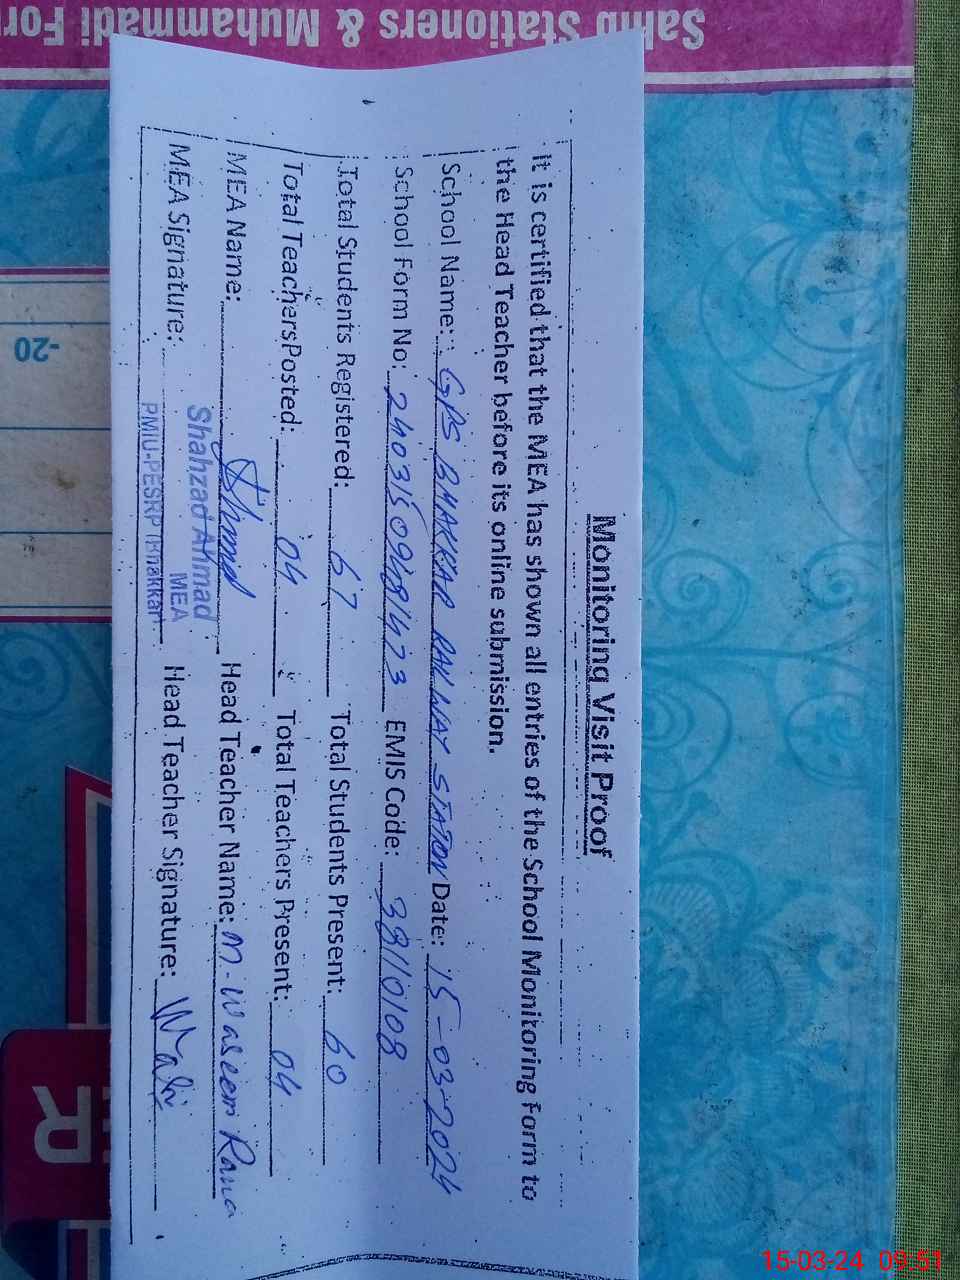 Monitoring Visit Proof
It is certified that the MEA has shown all entries of the School Monitoring Form to
the Head Teacher before its online submission.
School Name: GPS BHAKKAR RAILWAY STATION Date: 15-03-2024
School Form No: EMIS Code: 38110108
Total Students Registered: 67 Total Students Present: 60
Total Teachers Posted: 04 Total Teachers Present: 04
MEA Name: Head Teacher Name: M. Waseem Rana
MEA Signature: Shahzad Ahmad Head Teacher Signature:
MEA
PMIU-PESRP (Bhakkar)
Stationers & Muhammadi
-20
ER
15-03-24 09:51